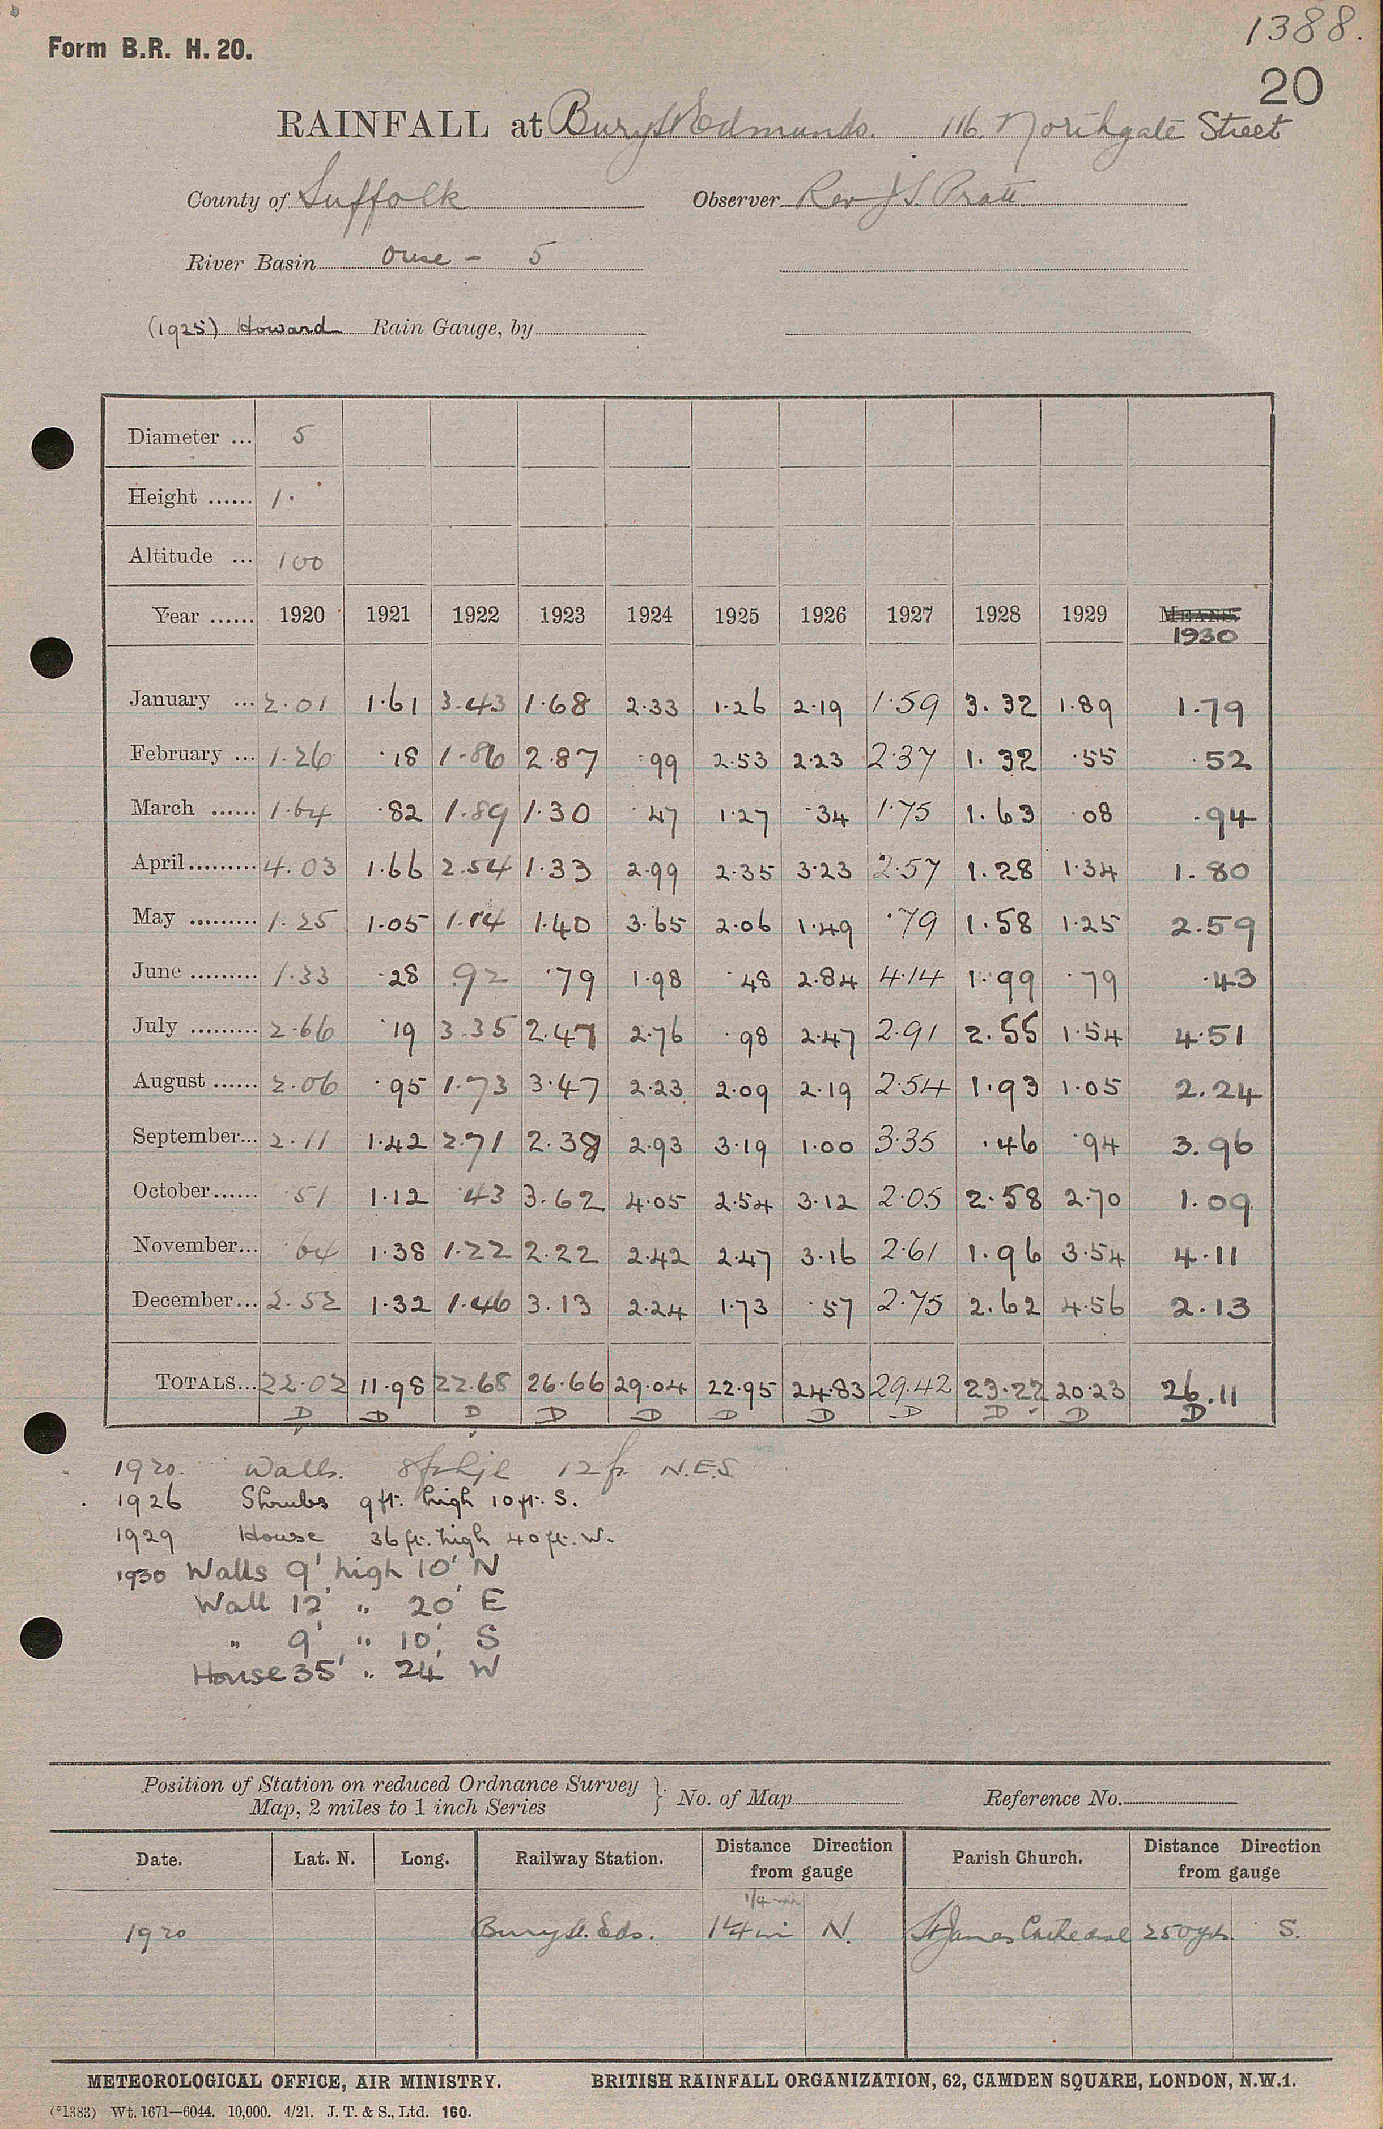 1388.
Form B.R. H. 20.
20
RAINFALL at Bury St Edmunds. 116 Northgate Street
County of Suffolk Observer Rev J S. Pratt
River Basin Ouse - 5
(1925) Howard Rain Gauge, by
Diameter ... 5
Height ...... 1·
Altitude ... 100
Year ...... 1920 1921 1922 1923 1924 1925 1926 1927 1928 1929 MEANS 1930
January ... 2.01 1.61 3.43 1.68 2.33 1.26 2.19 1.59 3.32 1.89 1.79
February ... 1.26 .18 1.86 2.87 .99 2.53 2.23 2.37 1.32 .55 .52
March ...... 1.64 .82 1.89 1.30 .47 1.27 .34 1.75 1.63 .08 .94
April......... 4.03 1.66 2.54 1.33 2.99 2.35 3.23 2.57 1.28 1.34 1.80
May ......... 1.25 1.05 1.14 1.40 3.65 2.06 1.49 .79 1.58 1.25 2.59
June ......... 1.33 .28 .92 .79 1.98 .48 2.84 4.14 1.99 .79 .43
July ......... 2.66 .19 3.35 2.47 2.76 .98 2.47 2.91 2.55 1.54 4.51
August ...... 2.06 .95 1.73 3.47 2.23 2.09 2.19 2.54 1.93 1.05 2.24
September... 2.11 1.42 2.71 2.38 2.93 3.19 1.00 3.35 .46 .94 3.96
October...... .51 1.12 .43 3.62 4.05 2.54 3.12 2.05 2.58 2.70 1.09
November... .64 1.38 1.22 2.22 2.42 2.47 3.16 2.61 1.96 3.54 4.11
December... 2.52 1.32 1.46 3.13 2.24 1.73 .57 2.75 2.62 4.56 2.13
TOTALS... 22.02 11.98 22.68 26.66 29.04 22.95 24.83 29.42 23.22 20.23 26.11
D D D D D D D D D D D
1920. Walls. 8ft high 12ft N.E.S.
1926 Shrubs 9ft. high 10ft. S.
1929 House 36ft. high 40ft. W.
1930 Walls 9' high 10' N
Wall 12' " 20' E
" 9' " 10' S
House 35' " 24' W
Position of Station on reduced Ordnance Survey
Map, 2 miles to 1 inch Series } No. of Map Reference No.
Date. Lat. N. Long. Railway Station. Distance Direction from gauge Parish Church. Distance Direction from gauge
1/4 mi
1920 Bury St. Eds. 1/4 mi N. St James Cathedral 250 yds. S.
METEOROLOGICAL OFFICE, AIR MINISTRY. BRITISH RAINFALL ORGANIZATION, 62, CAMDEN SQUARE, LONDON, N.W.1.
(*1383) Wt. 1671—6044. 10,000. 4/21. J. T. & S., Ltd. 160.